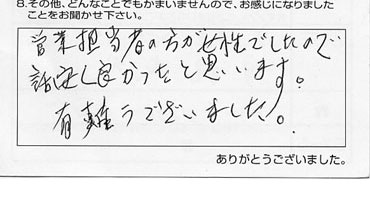 8.その他、どんなことでもかまいませんので、お感じになりました
ことをお聞かせ下さい。
営業担当者の方が女性でしたので
話安く良かったと思いいます。
有難うございました。
ありがとうございました。